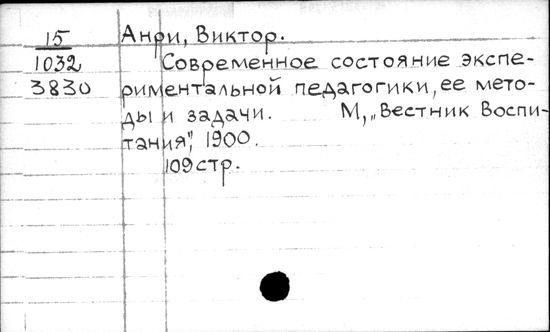 15
1032
3830
Анри, Виктор.
Современное состояние экспе-
риментальной педагогики, ее мето-
ды и задачи. М, „Вестник Воспи-
тания", 1900.
109 стр.